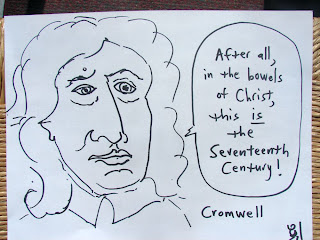 After all,
in the bowels
of Christ,
this is
the
Seventeenth
Century!
Cromwell